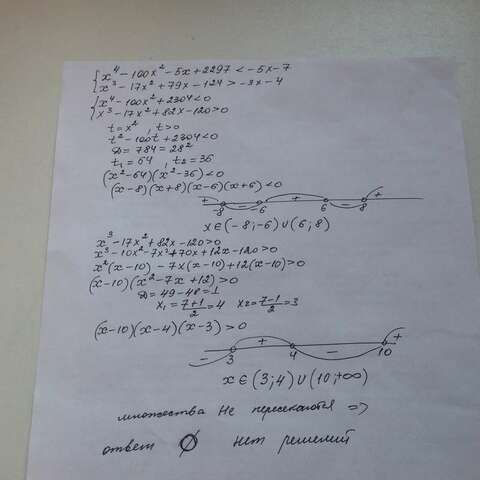 { x⁴ - 100x² - 5x + 2297 < -5x - 7
x³ - 17x² + 79x - 124 > -3x - 4
{ x⁴ - 100x² + 2304 < 0
x³ - 17x² + 82x - 120 > 0
t = x², t > 0
t² - 100t + 2304 < 0
D = 784 = 28²
t₁ = 64, t₂ = 36
(x² - 64)(x² - 36) < 0
(x - 8)(x + 8)(x - 6)(x + 6) < 0
+ - + - +
-8 -6 6 8
x ∈ (-8; -6) ∪ (6; 8)
x³ - 17x² + 82x - 120 > 0
x³ - 10x² - 7x² + 70x + 12x - 120 > 0
x²(x - 10) - 7x(x - 10) + 12(x - 10) > 0
(x - 10)(x² - 7x + 12) > 0
D = 49 - 48 = 1
x₁ = (7+1)/2 = 4 x₂ = (7-1)/2 = 3
(x - 10)(x - 4)(x - 3) > 0
- + - +
3 4 10
x ∈ (3; 4) ∪ (10; +∞)
множества не пересекаются =>
ответ ∅ нет решений